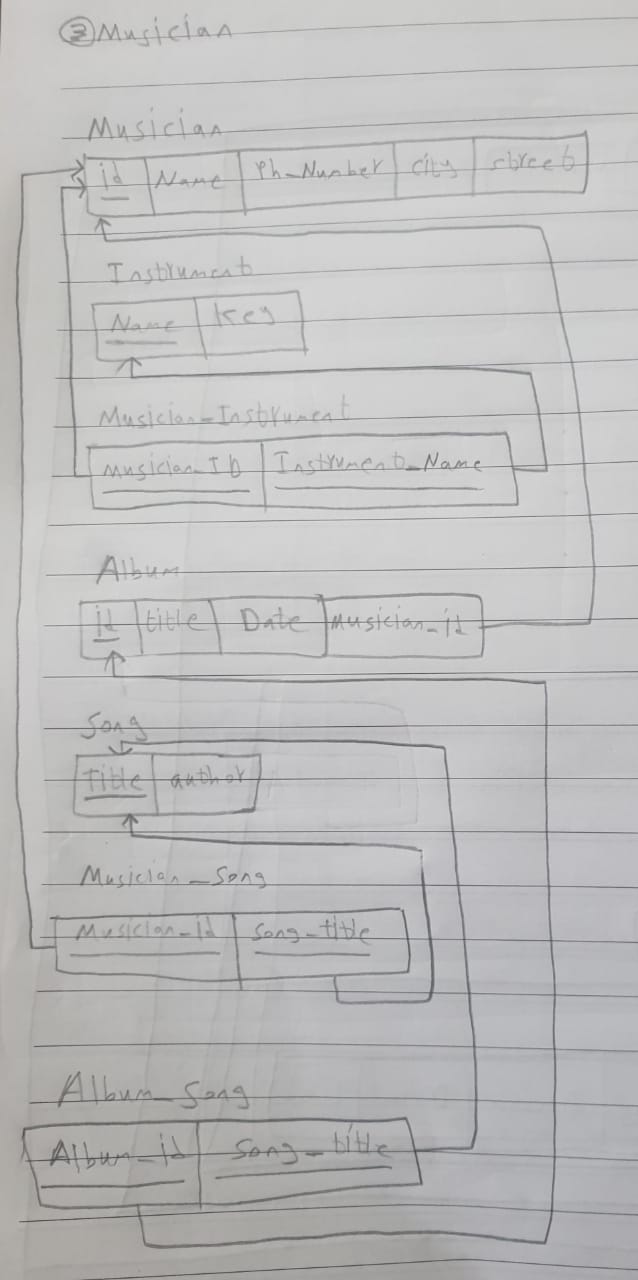 ③Musician
Musician
id Name Ph_Number city street
Instrument
Name Key
Musician_Instrument
Musician_ID Instrument_Name
Album
id title Date Musician_id
Song
Title author
Musician_Song
Musician_id Song_title
Album_Song
Album_id Song_title